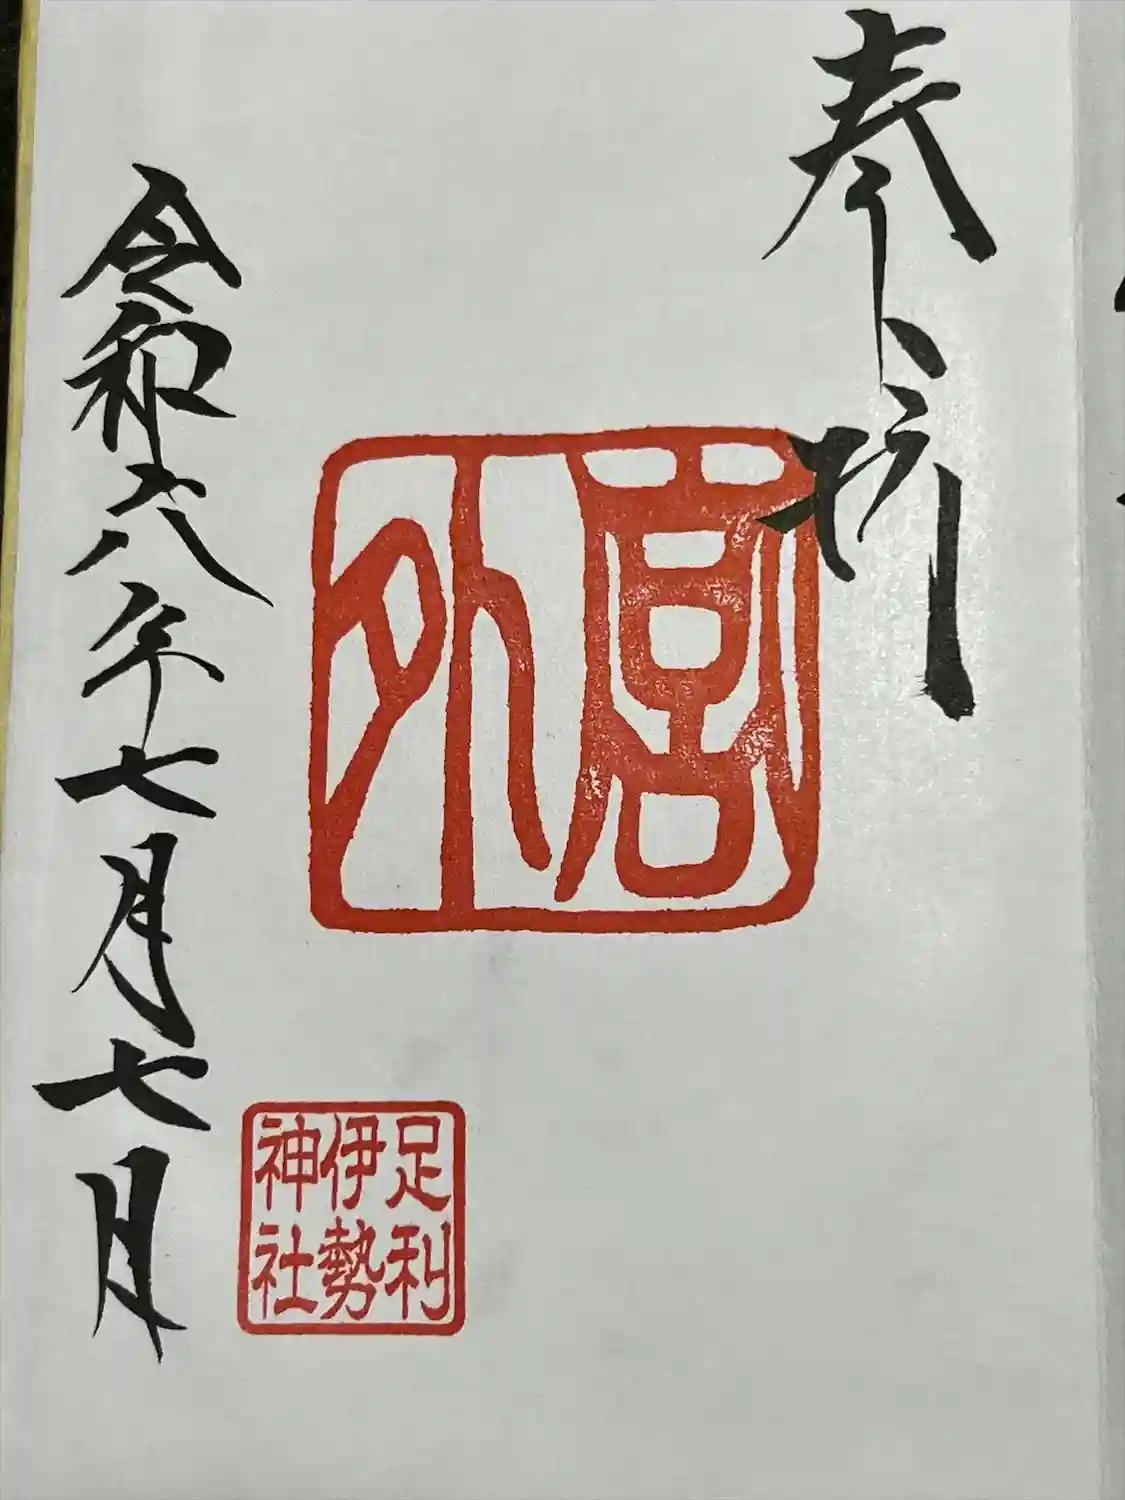 奉拝
外宮
令和六年七月七日
足利
伊勢
神社